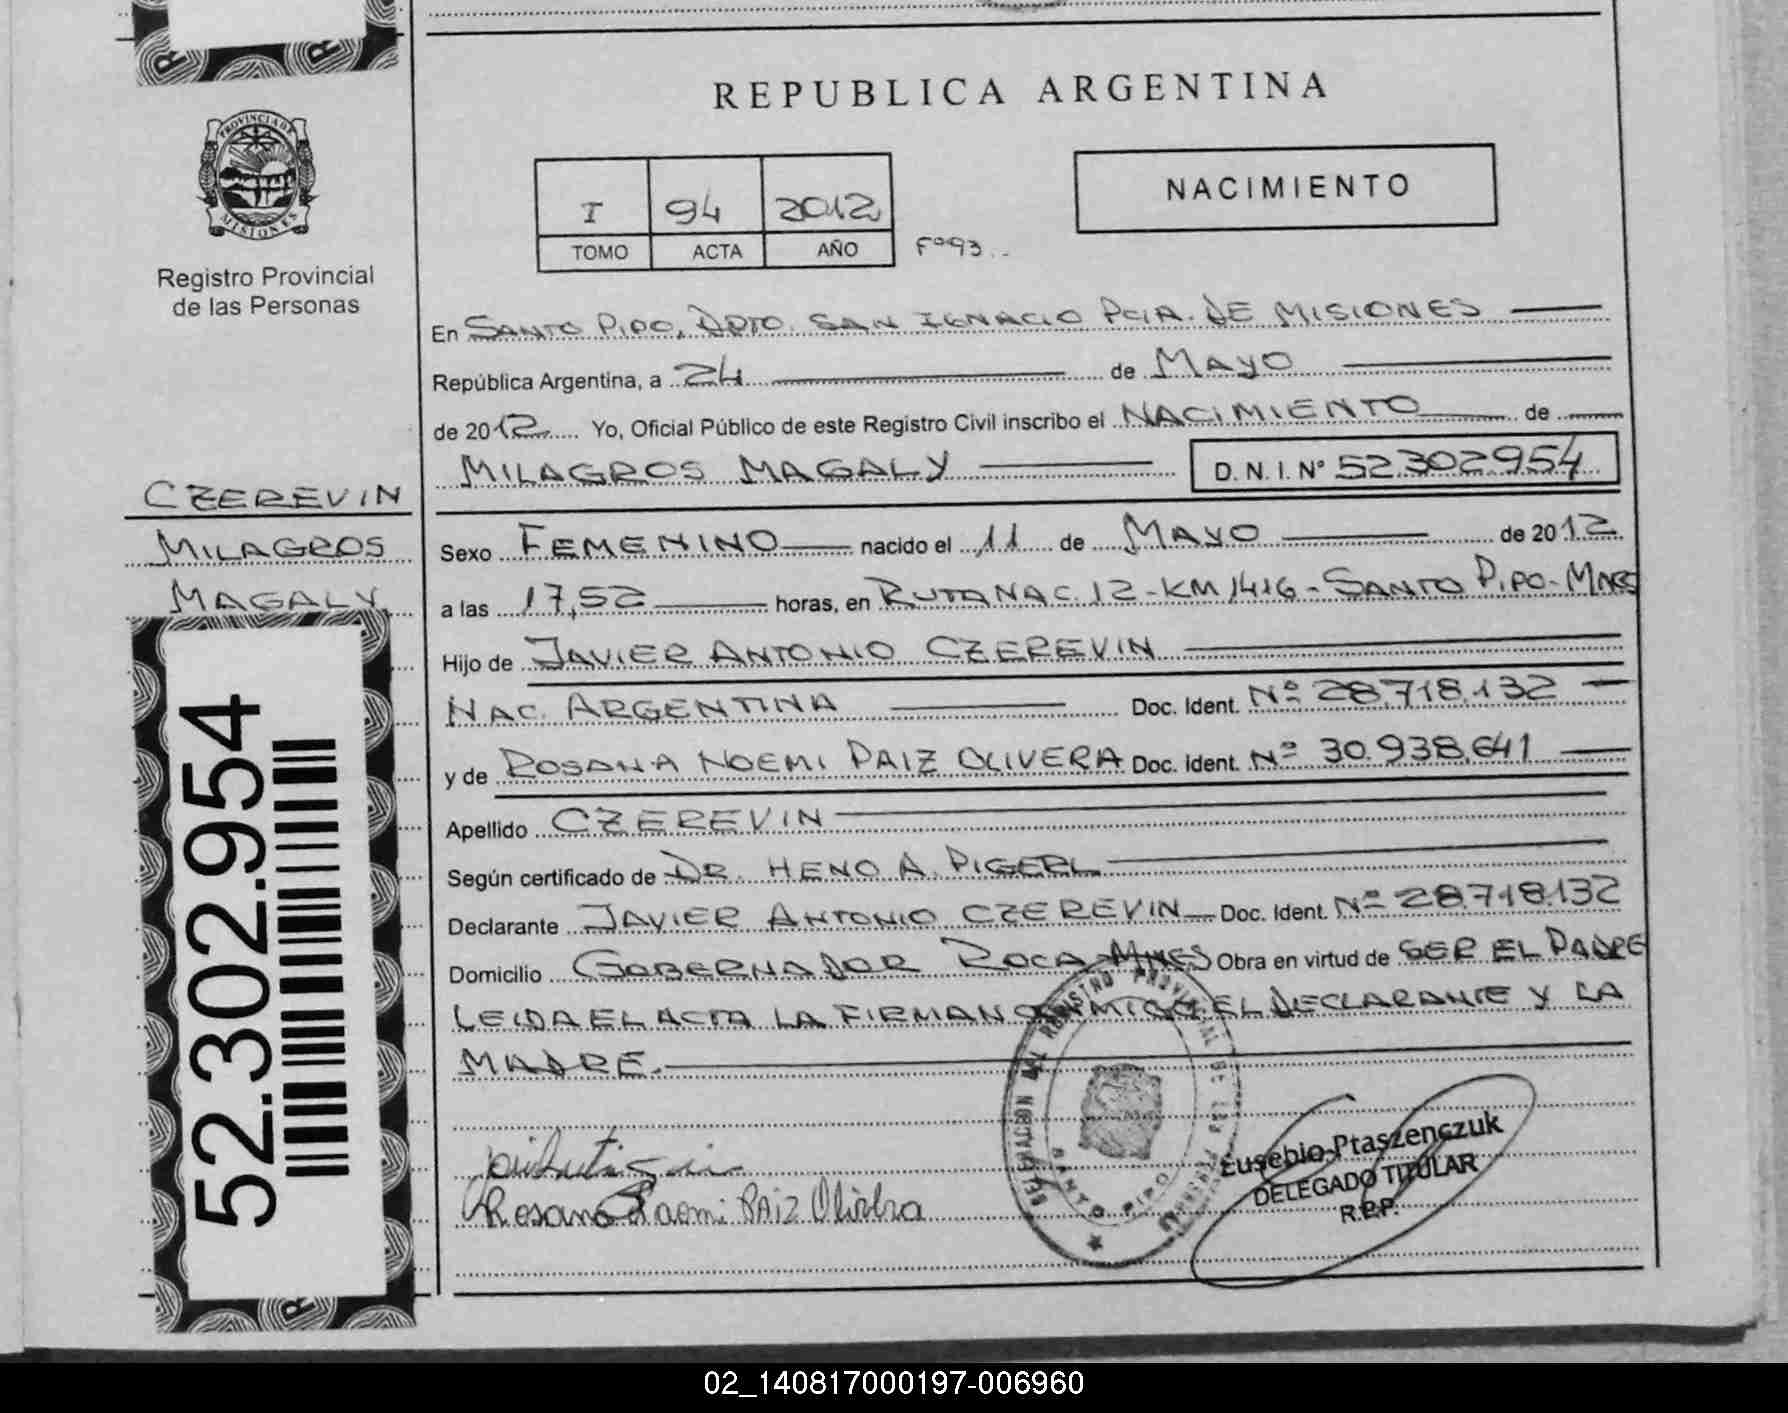 REPUBLICA ARGENTINA
PROVINCIA DE
MISIONES
Registro Provincial
de las Personas
I 94 2012
TOMO ACTA AÑO Fº93
NACIMIENTO
En SANTO PIPO, DPTO. SAN IGNACIO PCIA. DE MISIONES
República Argentina, a 24 de MAYO
de 2012 Yo, Oficial Público de este Registro Civil inscribo el NACIMIENTO de
MILAGROS MAGALY D.N.I. Nº 52.302.954
CZEREVIN
MILAGROS
MAGALY
52.302.954
Sexo FEMENINO nacido el 11 de MAYO de 2012
a las 17,52 horas, en RUTA NAC. 12-KM 1416-SANTO PIPO-MNES
Hijo de JAVIER ANTONIO CZEREVIN
NAC. ARGENTINA Doc. Ident. Nº 28.718.132
y de ROSANA NOEMI PAIZ OLIVERA Doc. Ident. Nº 30.938.641
Apellido CZEREVIN
Según certificado de DR. HENO A. PIGERL
Declarante JAVIER ANTONIO CZEREVIN Doc. Ident. Nº 28.718.132
Domicilio GOBERNADOR ROCA-MNES Obra en virtud de SER EL PADRE
LEIDA EL ACTA LA FIRMAN CONMIGO EL DECLARANTE Y LA
MADRE.
DELEGACION DEL REGISTRO PROVINCIAL DE LAS PERSONAS
SANTO PIPO
Rosana Naomi PAIZ Olivera
Eusebio Ptaszenczuk
DELEGADO TITULAR
R.P.P.
02_140817000197-006960